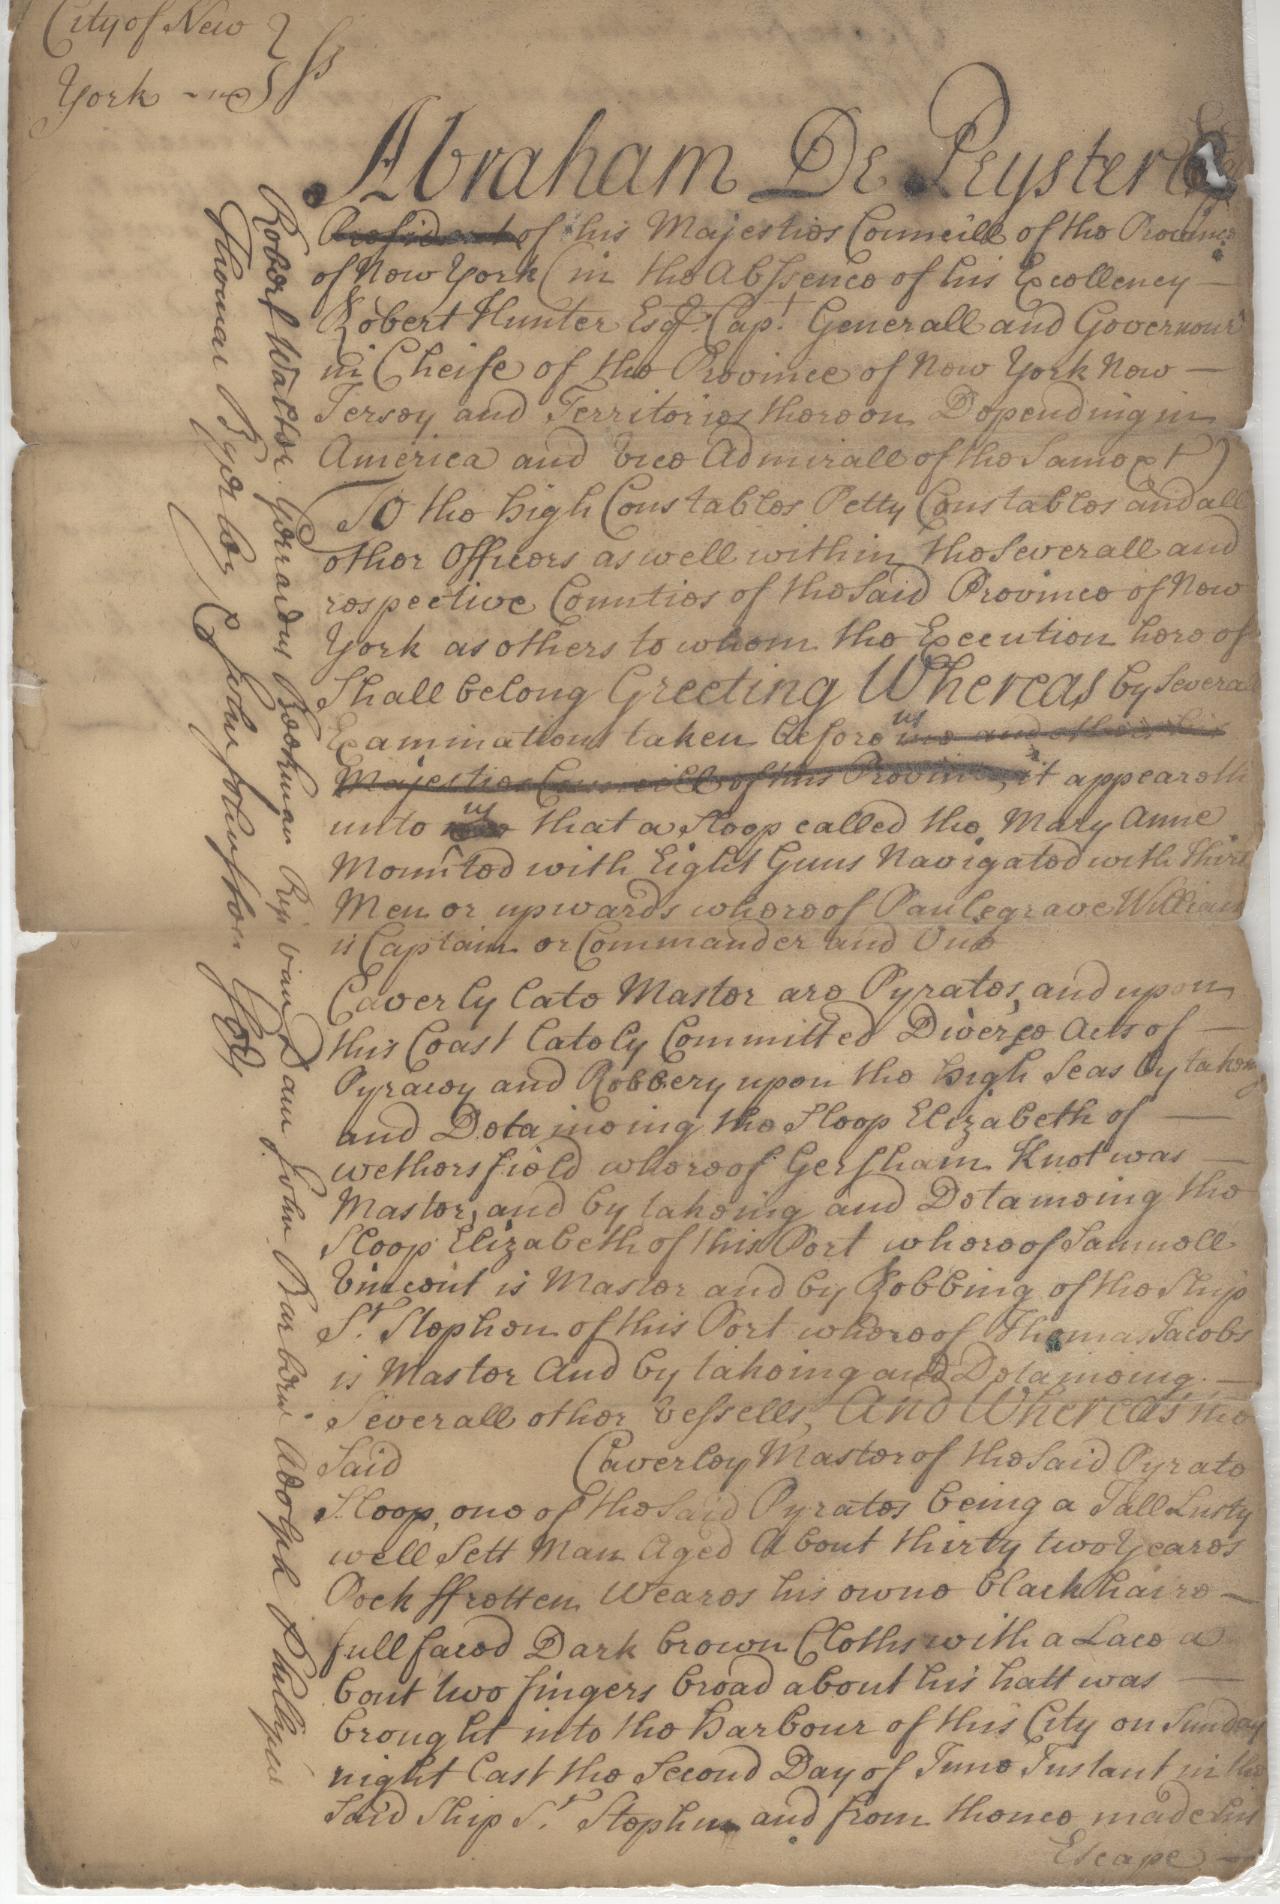 City of New } ss
York
Abraham De Peyster
President of his Majesties Councill of the Province
of New York (in the Abssence of his Excellency
Robert Hunter Esqr. Capt. Generall and Governour
in Cheife of the Province of New York New
Jersey and Territories thereon Depending in
America and Vice Admirall of the Same &ct)
To the high Constables Petty Constables and all
other Officers as well within the Severall and
respective Counties of the Said Province of New
York as others to whom the Execution hereof
Shall belong Greeting Whereas by Severall
Examinations taken before us me and others his
Majesties Councill of this Province it appeareth
unto us that a Sloop called the Mary Anne
Mounted with Eight Guns Navigated with thirty
Men or upwards whereof Paulsgrave William
is Captain or Commander and One
Caverly late Master are Pyrates, and upon
this Coast lately Committed Diverse Acts of
Pyracy and Robbery upon the high Seas by takeing
and Detaineing the Sloop Elizabeth of
wethersfield whereof Gersham Knot was
Master, and by takeing and Detaineing the
Sloop Elizabeth of this Port whereof Samuell
Vincent is Master and by Robbing of the Ship
St. Stephen of this Port whereof Thomas Jacobs
is Master And by takeing and Detaineing
Severall other Vessells, And Whereas the
Said Caverley Master of the Said Pyrate
Sloop, one of the Said Pyrates being a Tall Lusty
well Sett Man Aged About thirty two Yeares
Pock ffretten Weares his owne black haire
full faced Dark brown Cloths with a Lace a
bout two fingers broad about his hatt was
brought into the harbour of this City on Sunday
night last the Second Day of June Instant in the
Said Ship St. Stephen and from thence made his
Escape
Robert Walter Gerardus Beekman Rip van Dam John Barberie Adolph Philipse
Thomas Byerley & John Johnston Esqs